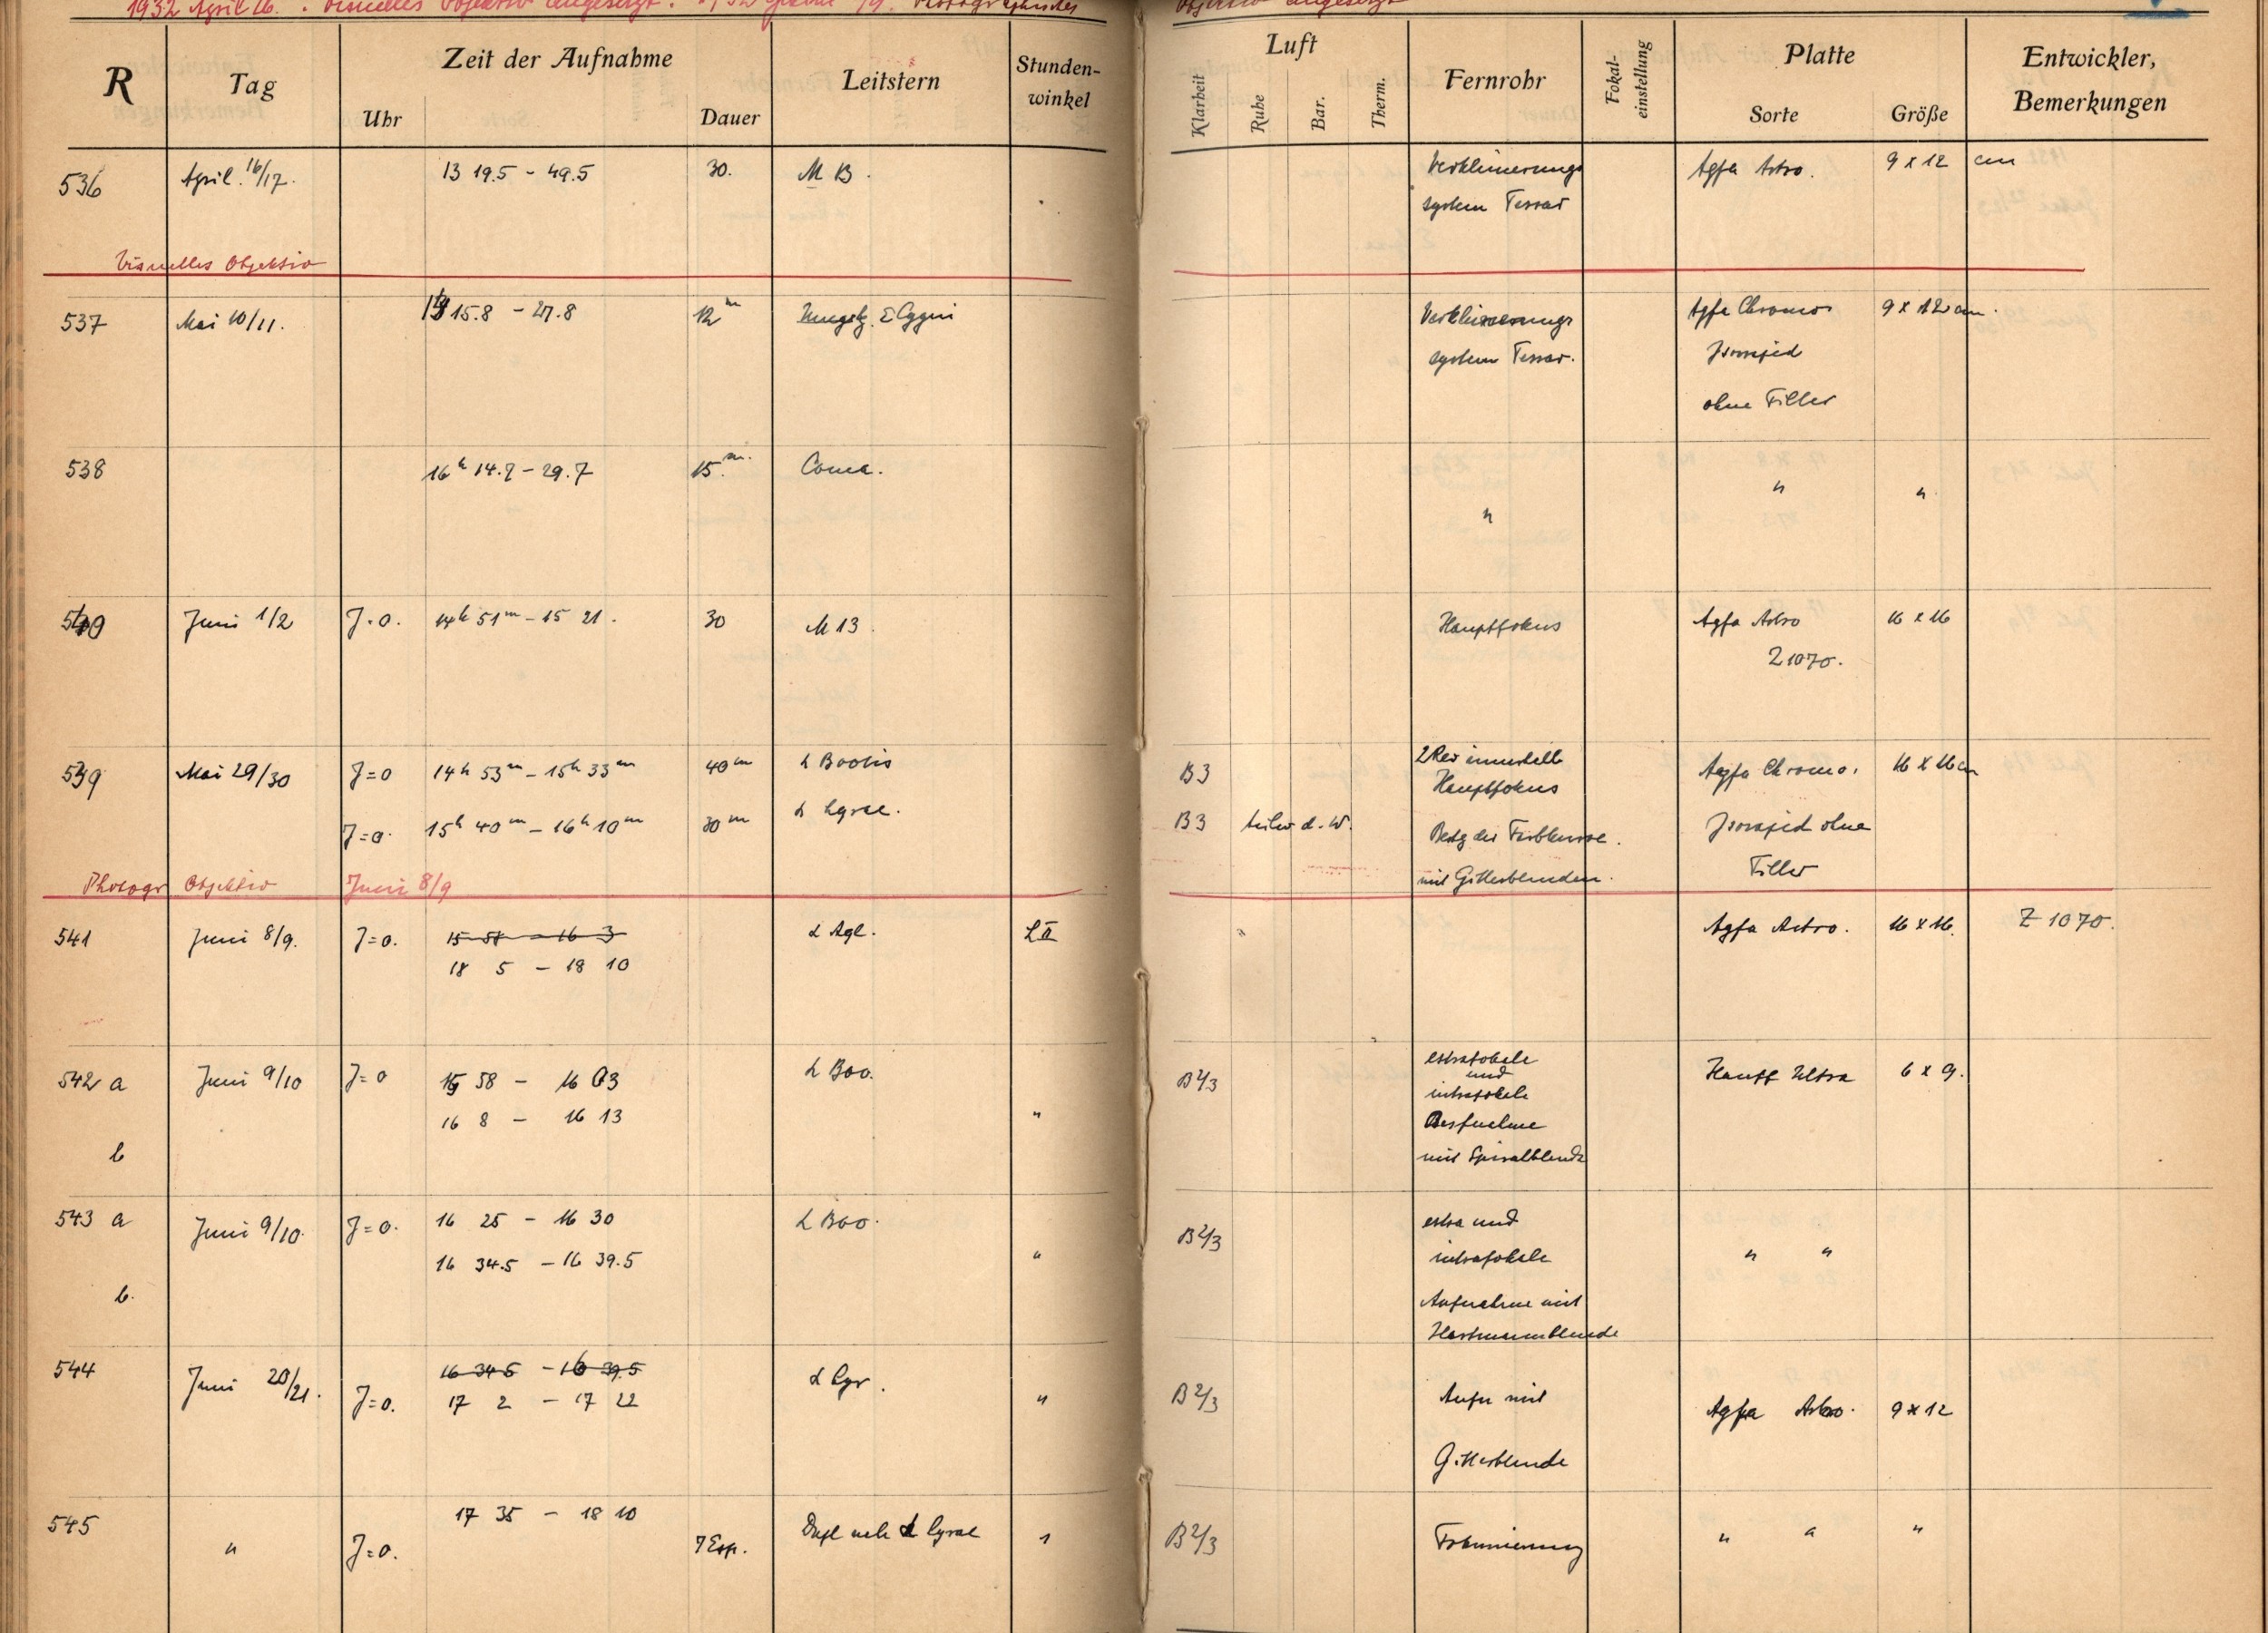 1932 April 16. Visuelles Objektiv angesetzt. Photographisches Objektiv angesetzt
R Tag Zeit der Aufnahme Leitstern Stunden-winkel Luft Fernrohr Fokal-einstellung Platte Entwickler, Bemerkungen
Uhr Dauer Klarheit Ruhe Bar. Therm. Sorte Größe
536 April 16/17. 13 19.5 - 49.5 30. M B. Verkleinerungs Agfa Astro. 9 x 12 cm
system Tessar
Visuelles Objektiv
537 Mai 10/11. 15.8 - 27.8 12m ε Cygni Verkleinerungs Agfa Chromo 9 x 12 cm.
system Tessar. Isorapid
ohne Filter
538 16h 14.7 - 29.7 15m. Coma. " "
"
540 Juni 1/2 J=0. 14h 51m - 15 21. 30 M 13. Hauptfokus Agfa Astro 16 x 16
Z 1070.
539 Mai 29/30 J=0 14h 53m - 15h 33m 40m α Bootis B3 2 Rev innerhalb Agfa Chromo. 16 x 16 cm
Hauptfokus
J=0. 15h 40m - 16h 10m 30m α Lyrae. B3 d. W. Bestg der Farbkurve. Isorapid ohne
mit Gitterblenden. Filter
Photogr Objektiv Juni 8/9
541 Juni 8/9. J=0. 15 58 - 16 3 α Aql. L II Agfa Astro. 16 x 16. Z 1070.
18 5 - 18 10
542 a Juni 9/10 J=0 15 58 - 16 03 α Boo. " B 2/3 extrafokale Hauff Ultra 6 x 9.
und
16 8 - 16 13 intrafokale
Aufnahme
b mit Spiralblende
543 a Juni 9/10. J=0. 16 25 - 16 30 α Boo. " B 2/3 extra und " "
16 34.5 - 16 39.5 intrafokale
b. Aufnahme mit
Hartmannblende
544 Juni 20/21. 16 34.5 - 16 39.5 α Lyr. " B 2/3 Aufn mit Agfa Astro. 9 x 12
J=0. 17 2 - 17 22
Gitterblende
545 " J=0. 17 35 - 18 10 7 Exp. α Lyrae " B 2/3 Fokussierung " " "